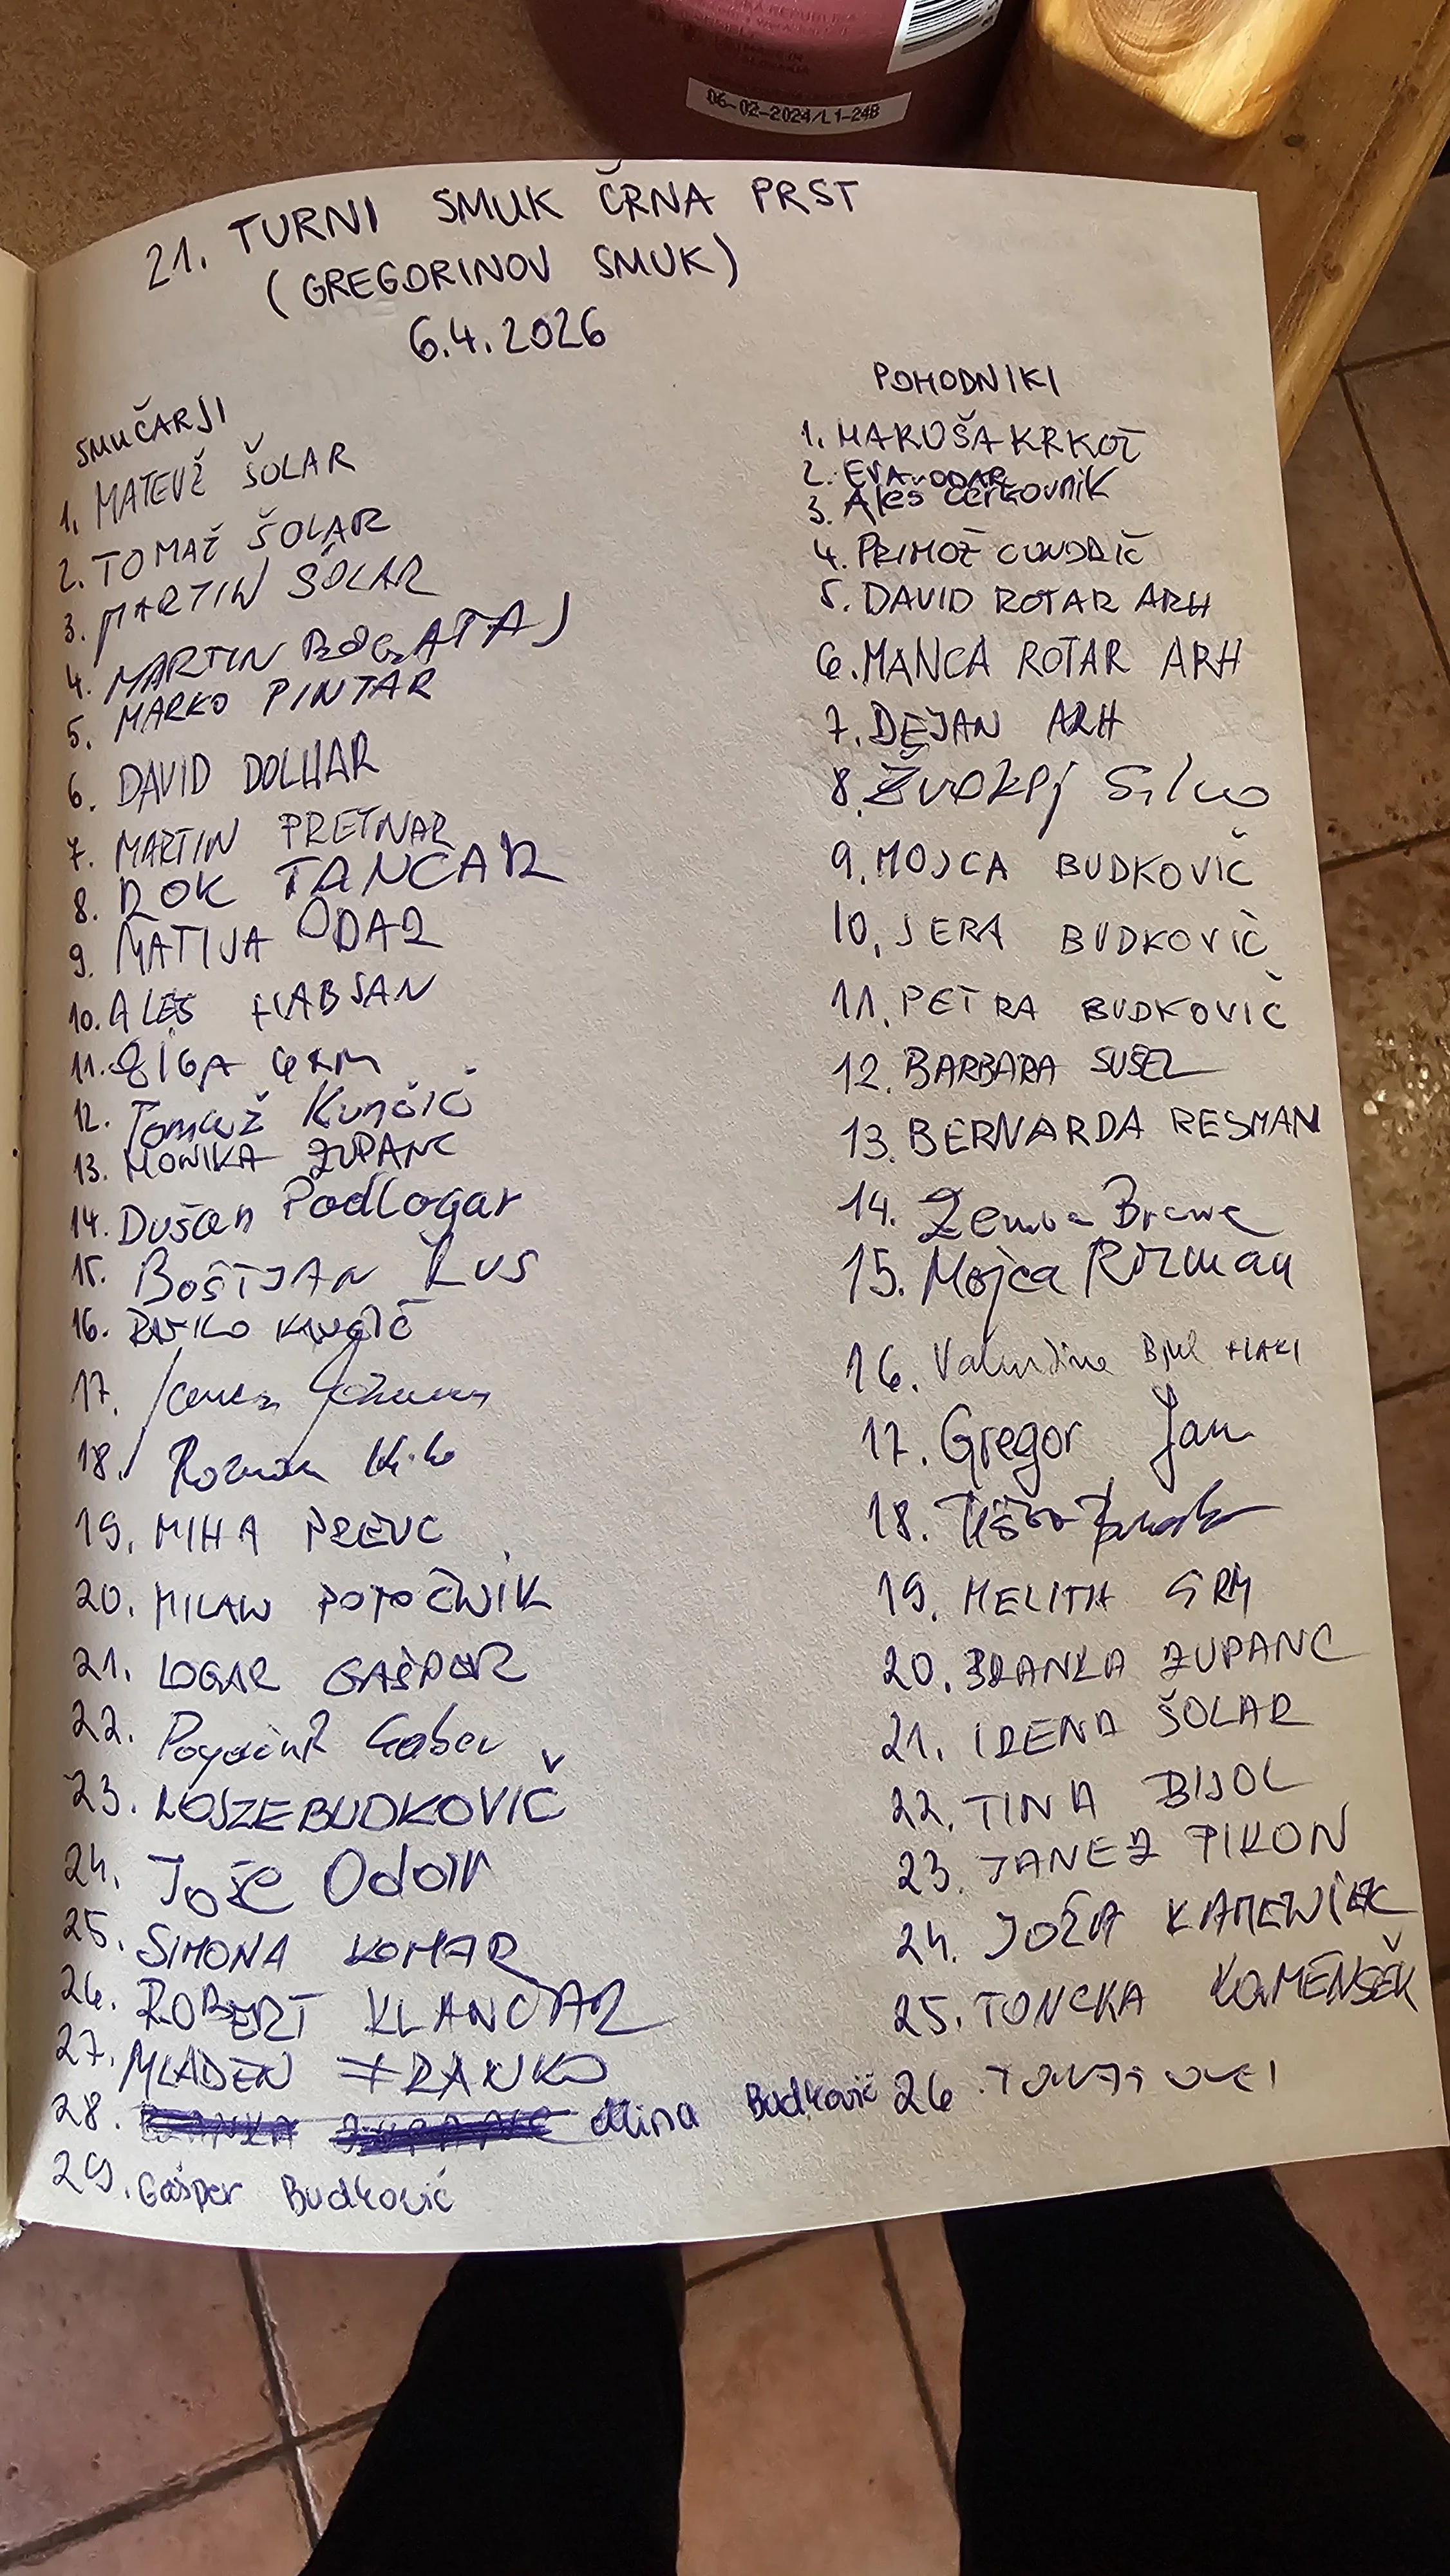 06-02-2024/L1-24B
21. TURNI SMUK ČRNA PRST
(GREGORINOV SMUK)
6.4.2026
SMUČARJI
1. MATEVŽ ŠOLAR
2. TOMAŽ ŠOLAR
3. MARTIN ŠOLAR
4. MARTIN BOGATAJ
5. MARKO PINTAR
6. DAVID DOLHAR
7. MARTIN PRETNAR
8. ROK TANCAR
9. MATIJA ODAR
10. ALEŠ HABJAN
11. ŽIGA GRM
12. Tomaž Kunčič
13. MONIKA ZUPANC
14. Dušan Podlogar
15. BOŠTJAN LUS
16. KUNČIČ
17.
18. Roman
19. MIHA PREVC
20. MILAN POTOČNIK
21. LOGAR GAŠPER
22. Gaber
23. LOJZE BUDKOVIČ
24. Jože Odar
25. SIMONA KOMAR
26. ROBERT KLANČAR
27. MLADEN FRANKO
28. Mina Budkovič
29. Gašper Budkovič
POHODNIKI
1. MARUŠA KRKOČ
2. EVA ODAR
3. Aleš Cerkovnik
4. PRIMOŽ
5. DAVID ROTAR ARH
6. MANCA ROTAR ARH
7. DEJAN ARH
8. Žvokelj Silvo
9. MOJCA BUDKOVIČ
10. JERA BUDKOVIČ
11. PETRA BUDKOVIČ
12. BARBARA SUŠEL
13. BERNARDA RESMAN
14.
15. Mojca Rozman
16.
17. Gregor Jan
18.
19. MELITA GRM
20. BRANKA ZUPANC
21. IRENA ŠOLAR
22. TINA BIJOL
23. JANEZ PIKON
24. JOŽA KAMENŠEK
25. TONČKA KAMENŠEK
26